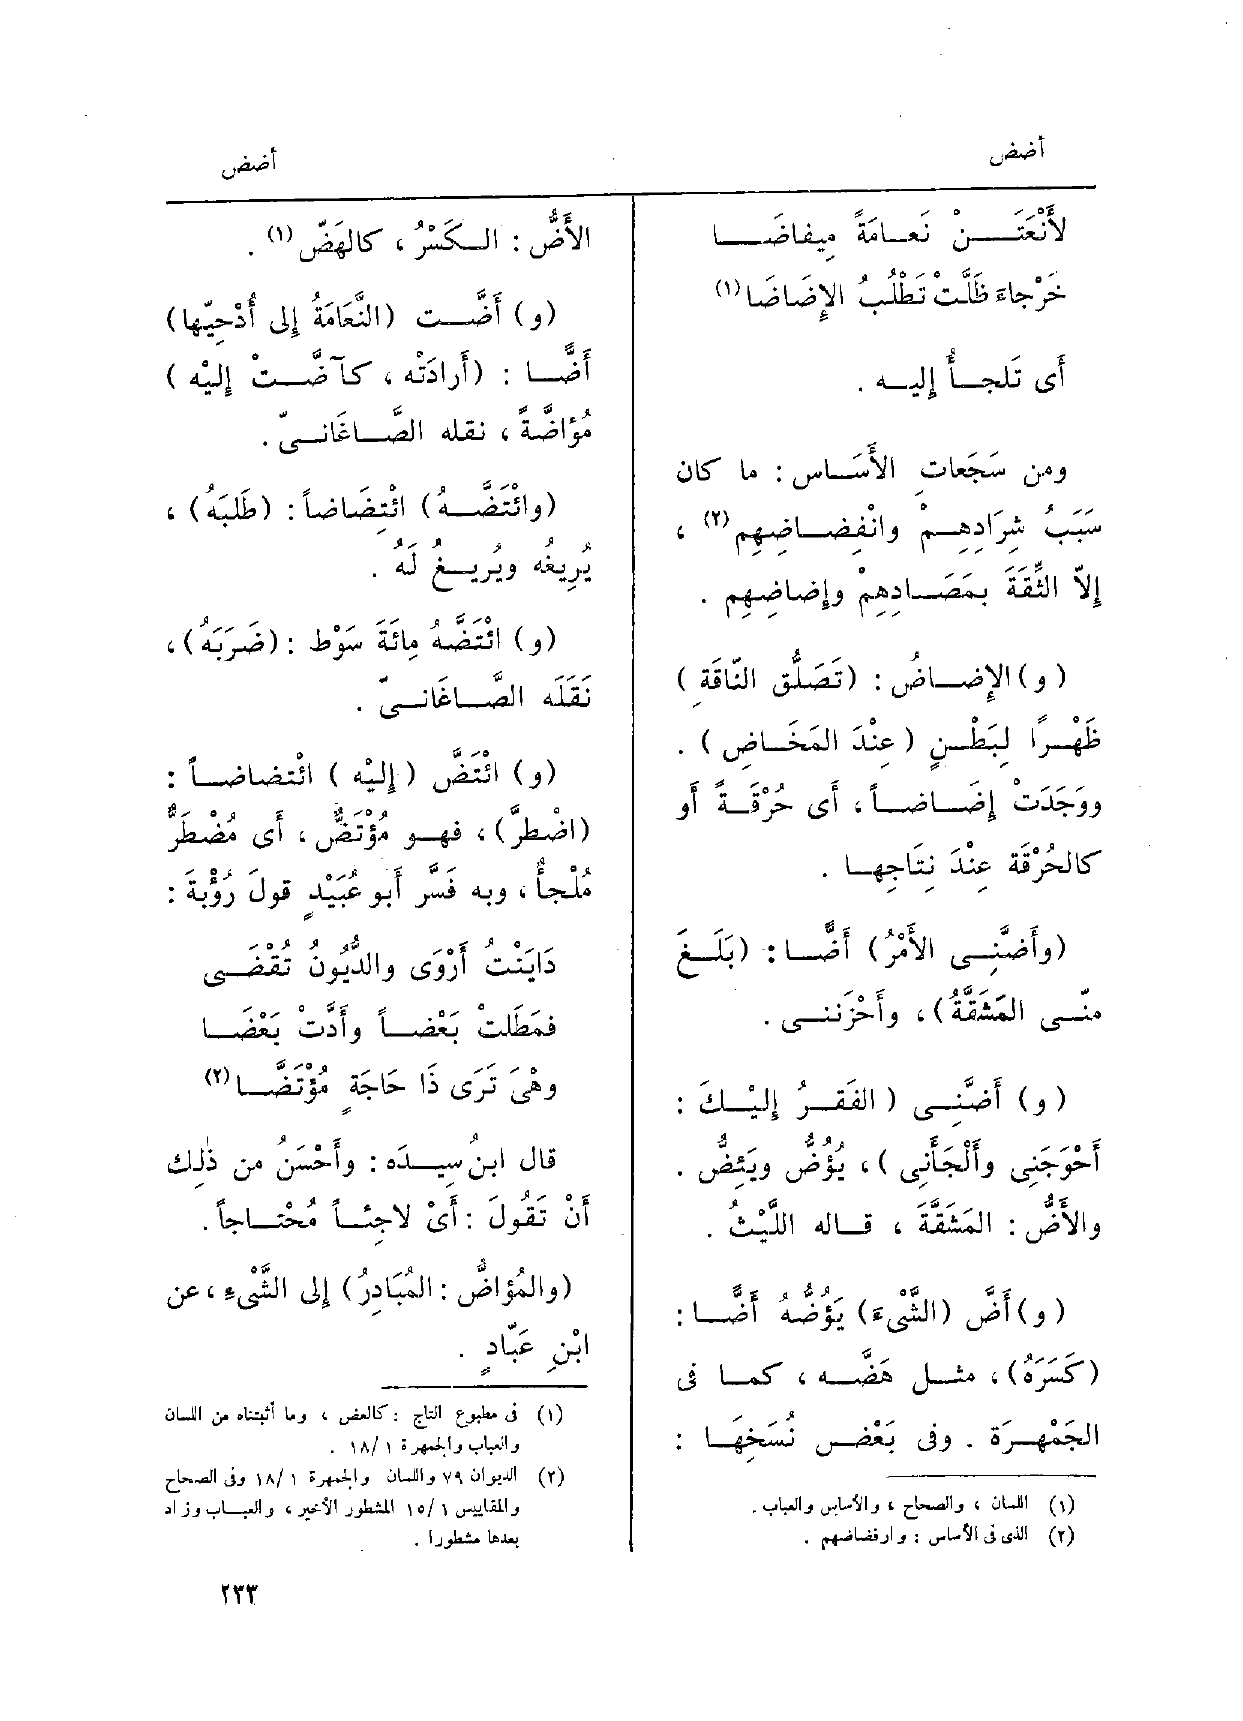 أضض
أضض
لأَنْعَتَنْ نَعامَةً مِيفاضَا
خَرْجاءَ ظَلَّتْ تَطْلُبُ الإِضَاضَا(١)
أى تَلجأُ إليه .
ومن سَجَعاتِ الأَسَاس : ما كان
سَبَبُ شِرَادِهِمْ وانْفِضاضِهِم(٢) ،
إلاّ الثِّقَةَ بِمَصَادِهِمْ وإضاضِهِم .
(و) الإِضاضُ : (تَصَلُّق النّاقَةِ)
ظَهْرًا لِبَطْنٍ (عِنْدَ المَخَاضِ) .
ووَجَدَتْ إضَاضاً ، أى حُرْقَةً أو
كالحُرْقَة عِنْدَ نِتَاجِها .
(وأَضَّنِى الأَمْرُ) أَضًّا : (بَلَغَ
منّى المَشَقَّةُ) ، وأَحْزَننى .
(و) أَضَّنِى (الفَقْرُ إلَيْكَ :
أَحْوَجَنِى وأَلْجَأَنِى) ، يَؤُضُّ ويَئِضُّ .
والأَضُّ : المَشَقَّة ، قاله اللَّيْثُ .
(و) أَضَّ (الشَّىْءَ) يَؤُضُّهُ أَضًّا :
(كَسَرَهُ) ، مثل هَضَّه ، كما فى
الجَمْهرَة . وفى بَعْضِ نُسَخِهَا :
(١) اللسان ، والصحاح ، والأساس والعباب .
(٢) الذى فى الأساس : وارفضاضهم .
الأَضُّ : الكَسْرُ ، كالهَضّ(١) .
(و) أَضَّت (النَّعَامَةُ إلى أُدْحِيِّها)
أَضًّا : (أَرادَتْه ، كآضَّتْ إليْه)
مُؤاضَّةً ، نقله الصَّاغَانىّ .
(وائْتَضَّهُ) ائْتِضَاضاً : (طَلَبَهُ) ،
يُرِيغُه ويُرِيغُ لَهُ .
(و) ائْتَضَّهُ مِائَةَ سَوْط : (ضَرَبَهُ) ،
نَقَلَه الصَّاغَانىّ .
(و) ائْتَضَّ (إِلَيْه) ائْتضاضاً :
(اضْطرَّ) ، فهو مُؤْتَضٌّ ، أى مُضْطَرٌّ
مُلْجأٌ ، وبه فَسَّر أَبو عُبَيْدٍ قولَ رُؤْبةَ :
دَايَنْتُ أَرْوَى والدُّيُونُ تُقْضَى
فمَطَلَتْ بَعْضاً وأَدَّتْ بَعْضَا
وهْىَ تَرَى ذَا حَاجَةٍ مُؤْتَضَّا(٢)
قال ابنُ سِيدَه : وأَحْسَنُ من ذٰلِك
أَنْ تَقُولَ : أَىْ لاجِئاً مُحْتاجاً .
(والمُؤاضُّ : المُبَادِرُ) إلى الشَّىْءِ ، عن
ابْنِ عَبّادٍ .
(١) فى مطبوع التاج : كالعض ، وما أثبتناه من اللسان
والعباب والجمهرة ١ /١٨ .
(٢) الديوان ٧٩ واللسان والجمهرة ١ /١٨ وفى الصحاح
والمقاييس ١ /١٥ المشطور الأخير ، والعباب وزاد
بعدها مشطورا .
٢٣٣